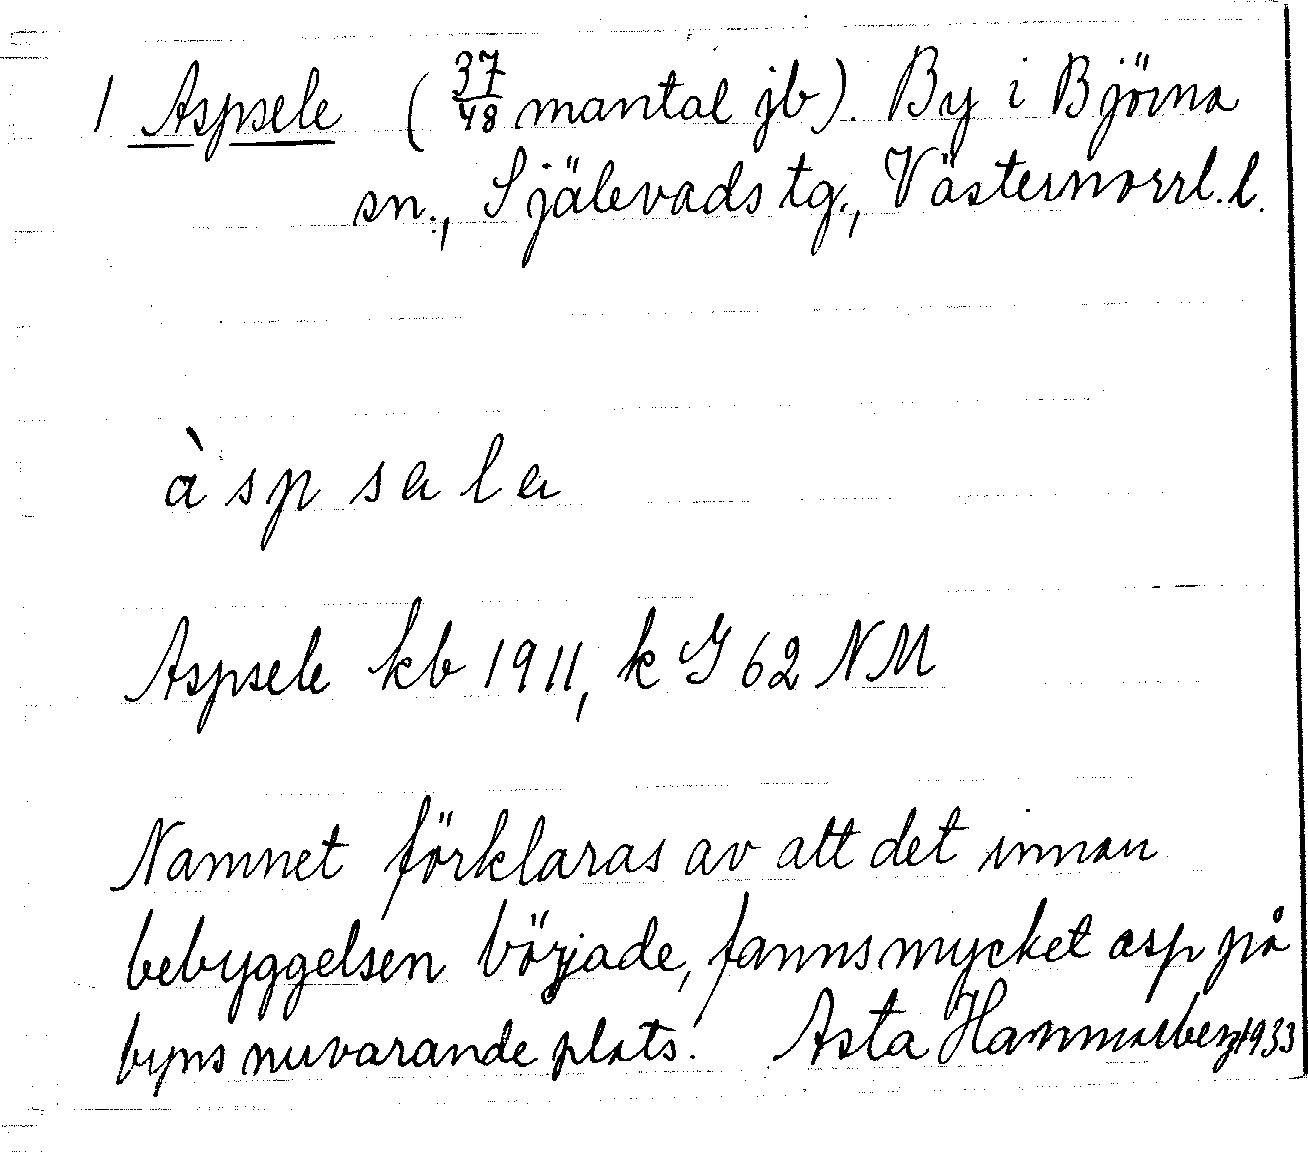 1 Aspsele (37/48 mantal jb). By i Björna
sn., Själevads tg., Västernorrl. l.
àspsala
Aspsele kb 1911, k G 62 NM
Namnet förklaras av att det innan
bebyggelsen började, fanns mycket asp på
byns nuvarande plats. Asta Hammarberg 1933